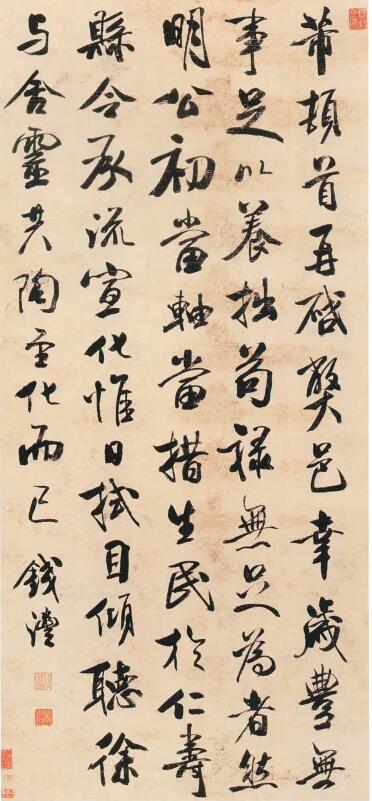 芾頓首再啓弊邑幸歲豐無
事足以養拙苟祿無足為者然
明公初當軸當措生民於仁壽
縣令承流宣化惟日拭目傾聽徐
与含靈共陶至化而已 錢灃